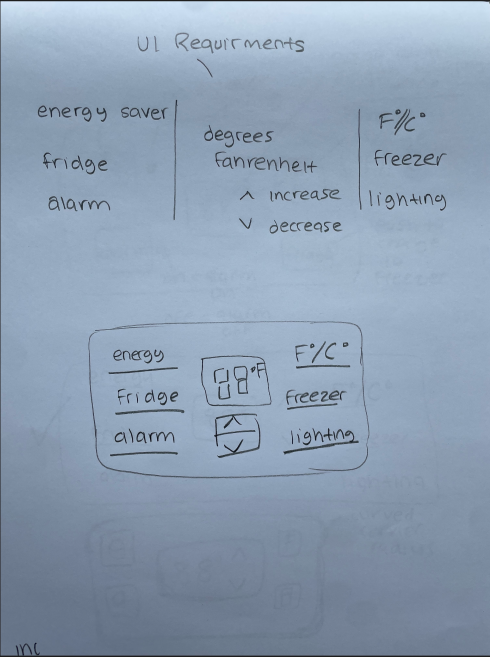 UI Requirments
energy saver
fridge
alarm
degrees
fahrenheit
^ increase
v decrease
F°/C°
freezer
lighting
energy
Fridge
alarm
°F
^
v
F°/C°
Freezer
lighting
inc